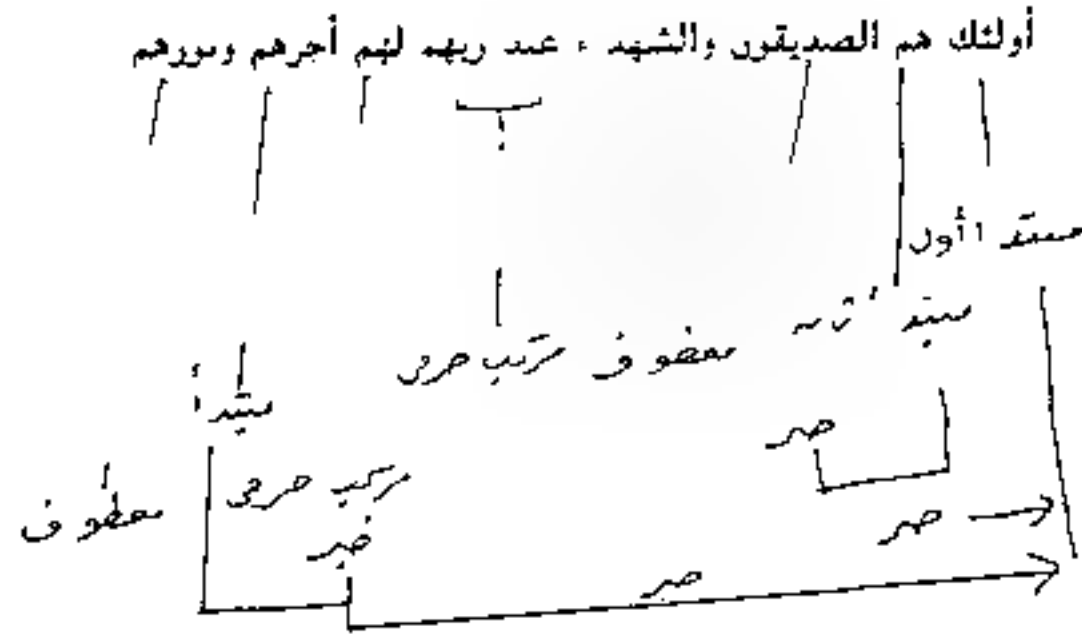 أولئك هم الصديقون والشهد ء عند ربهم لهم أجرهم ونورهم
مبتد اأول
مبتدأ ثان معطوف مركب حرفي
مبتدأ
خبر
معطوف مركب حرفي
خبر
خبر
خبر